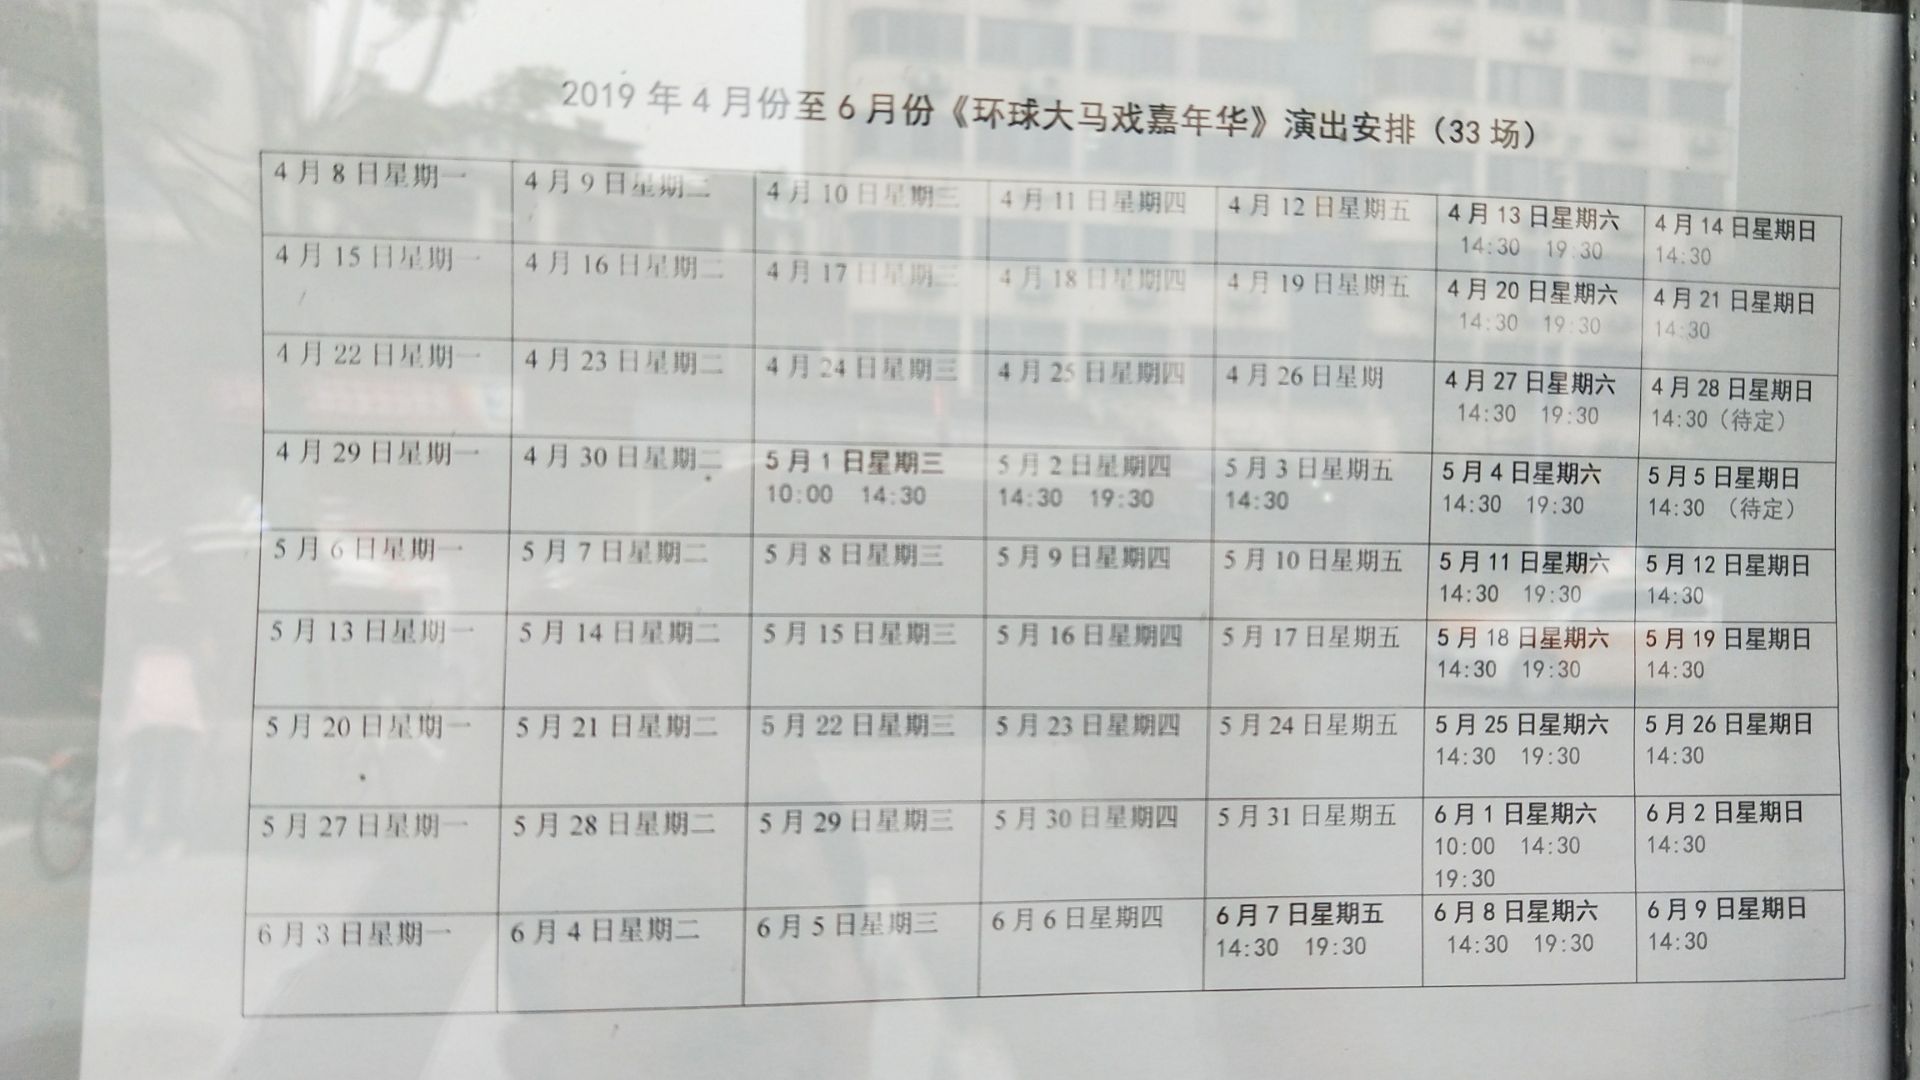 2019 年 4 月份至 6 月份《环球大马戏嘉年华》演出安排（33 场）
4 月 8 日星期一
4 月 9 日星期二
4 月 10 日星期三
4 月 11 日星期四
4 月 12 日星期五
4 月 13 日星期六
14:30 19:30
4 月 14 日星期日
14:30
4 月 15 日星期一
4 月 16 日星期二
4 月 17 日星期三
4 月 18 日星期四
4 月 19 日星期五
4 月 20 日星期六
14:30 19:30
4 月 21 日星期日
14:30
4 月 22 日星期一
4 月 23 日星期二
4 月 24 日星期三
4 月 25 日星期四
4 月 26 日星期
4 月 27 日星期六
14:30 19:30
4 月 28 日星期日
14:30（待定）
4 月 29 日星期一
4 月 30 日星期二
5 月 1 日星期三
10:00 14:30
5 月 2 日星期四
14:30 19:30
5 月 3 日星期五
14:30
5 月 4 日星期六
14:30 19:30
5 月 5 日星期日
14:30 （待定）
5 月 6 日星期一
5 月 7 日星期二
5 月 8 日星期三
5 月 9 日星期四
5 月 10 日星期五
5 月 11 日星期六
14:30 19:30
5 月 12 日星期日
14:30
5 月 13 日星期一
5 月 14 日星期二
5 月 15 日星期三
5 月 16 日星期四
5 月 17 日星期五
5 月 18 日星期六
14:30 19:30
5 月 19 日星期日
14:30
5 月 20 日星期一
5 月 21 日星期二
5 月 22 日星期三
5 月 23 日星期四
5 月 24 日星期五
5 月 25 日星期六
14:30 19:30
5 月 26 日星期日
14:30
5 月 27 日星期一
5 月 28 日星期二
5 月 29 日星期三
5 月 30 日星期四
5 月 31 日星期五
6 月 1 日星期六
10:00 14:30
19:30
6 月 2 日星期日
14:30
6 月 3 日星期一
6 月 4 日星期二
6 月 5 日星期三
6 月 6 日星期四
6 月 7 日星期五
14:30 19:30
6 月 8 日星期六
14:30 19:30
6 月 9 日星期日
14:30